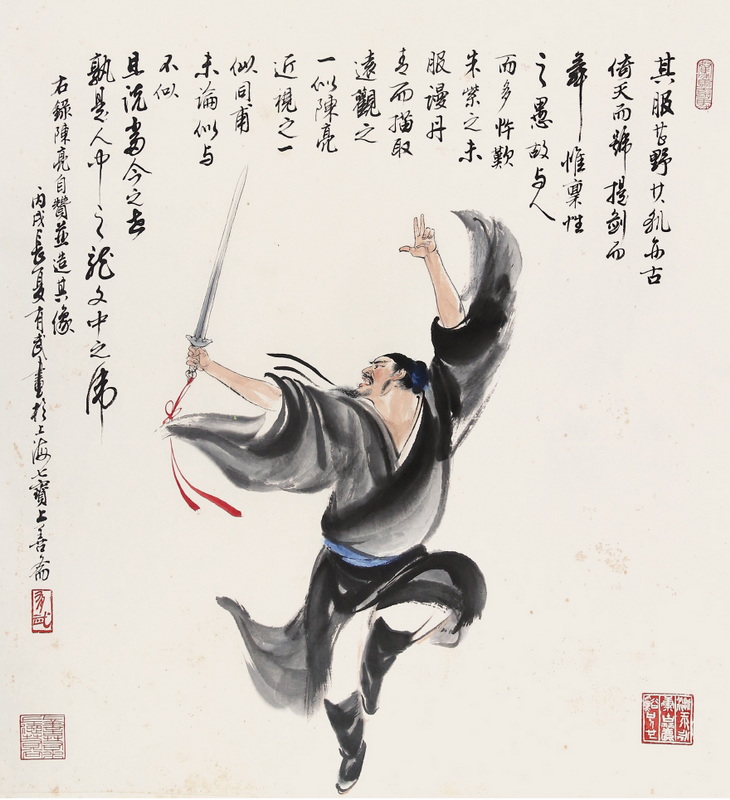 其服甚野其貌亦古
倚天而號提劍而
舞惟稟性
之愚故与人
而多忤歎
朱紫之未
服謾丹
青而描取
遠觀之
一似陳亮
近視之一
似同甫
未論似与
不似
且說當今之世
孰是人中之龍文中之虎
右錄陳亮自贊並造其像
丙戌長夏有武畫於上海七寶上善齋